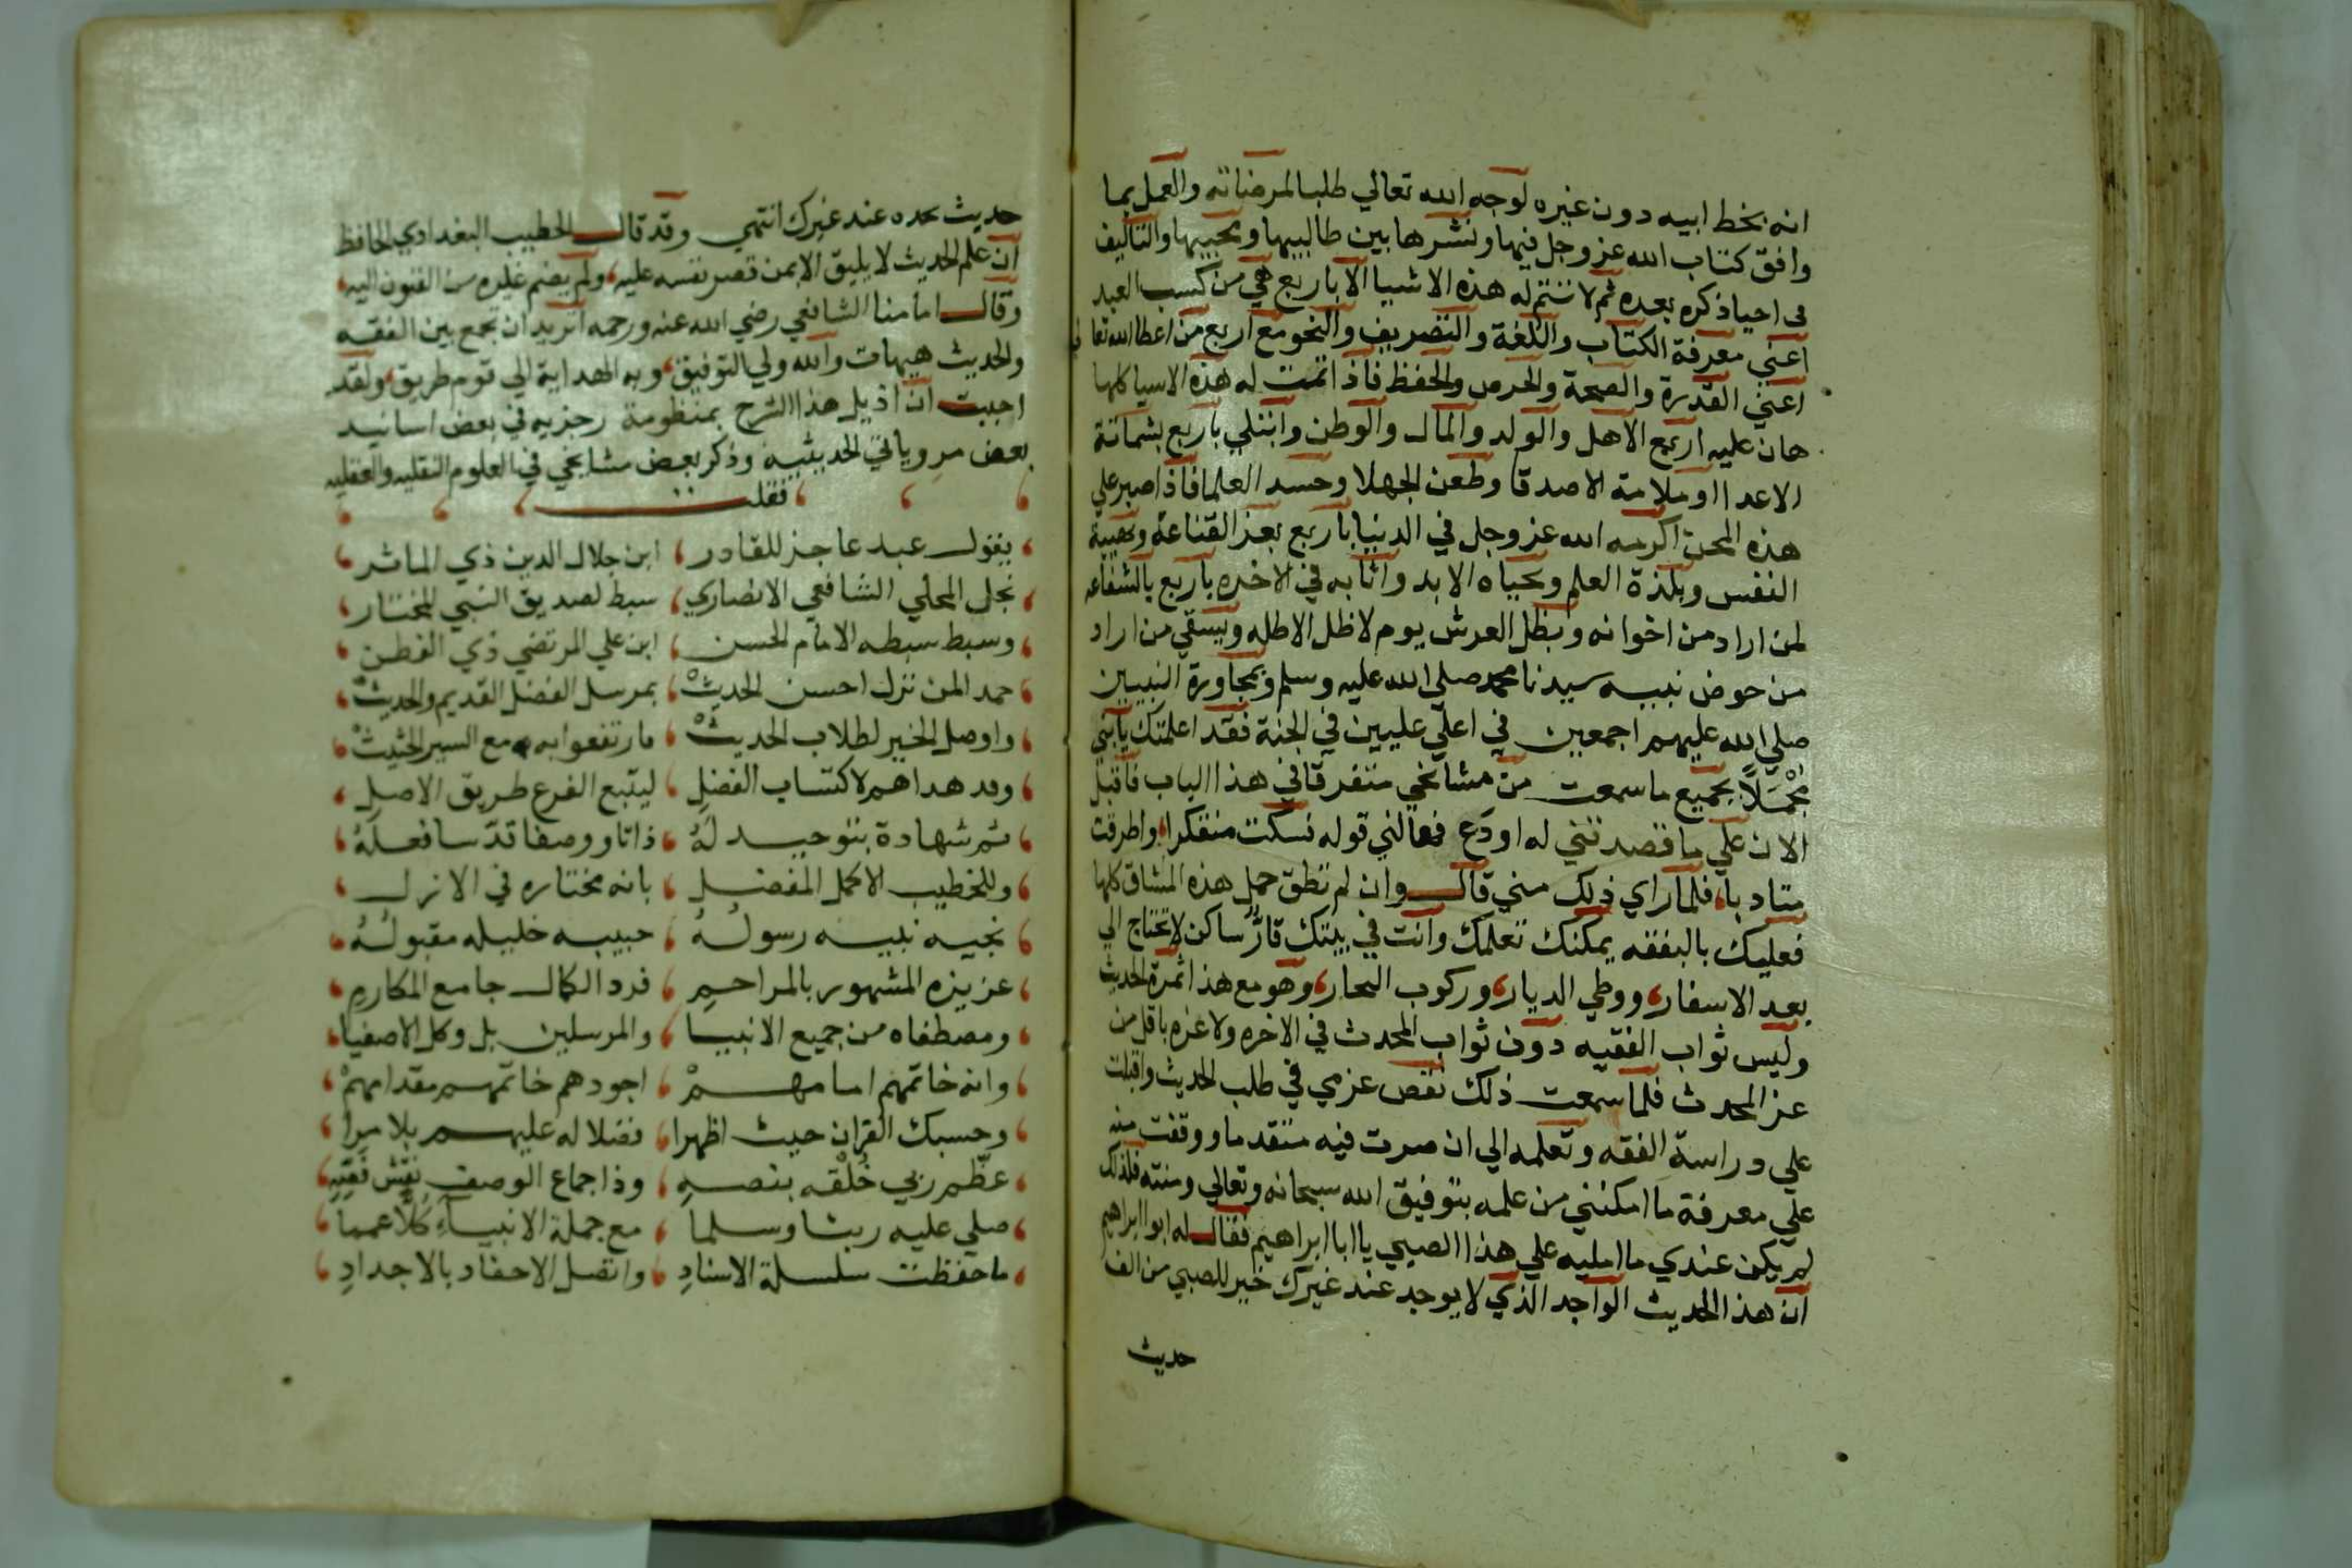 انه بخط ابيه دون غيره لوجه الله تعالي طلبا لمرضاته والعمل بما
وافق كتاب الله عز وجل فيها ونشرها بين طالبيها ومحبيها والتاليف
في احيا ذكره بعده ثم لا تتم له هذه الاشيا الا باربع هي من كسب العبد
اعني معرفة الكتاب واللغة والتصريف والنحو مع اربع من اعطا الله تعا
اعني القدرة والصحة والحرص والحفظ فاذا تمت له هذه الاسيا كلها
هان عليه اربع الاهل والولد والمال والوطن وابتلي باربع بشماتة
الاعدا او ملامة الاصدقا وطعن الجهلا وحسد العلما فاذا صبر علي
هذه المحن اكرمه الله عز وجل في الدنيا باربع بعز القناعة وبهيبة
النفس وبلذة العلم وبحياه الابد واثابه في الاخره باربع بالشفاعه
لمن اراد من اخوانه وبظل العرش يوم لا ظل الا ظله ويسقي من اراد
من حوض نبيه سيدنا محمد صلي الله عليه وسلم وبمجاورة النبيين
صلي الله عليهم اجمعين في اعلي عليين في الجنة فقد اعلمتك يا بني
مجملا بجميع ما سمعت من مشائخي متفرقا في هذا الباب فاقبل
الان علي ما قصدتني له او دع فهالني قوله فسكت متفكرا واطرقت
متادبا فلما راي ذلك مني قال وان لم تطق حمل هذه المشاق كلها
فعليك بالفقه يمكنك تعلمك وانت في بيتك قار ساكن لا تحتاج الي
بعد الاسفار ووطي الديار وركوب البحار وهو مع هذا ثمرة الحديث
وليس ثواب الفقيه دون ثواب المحدث في الاخره ولا عزه باقل من
عز المحدث فلما سمعت ذلك نقص عزمي في طلب الحديث واقبلت
علي دراسة الفقه وتعلمه الي ان صرت فيه متقدما ووقفت منه
علي معرفة ما امكنني من علمه بتوفيق الله سبحانه وتعالي ومنته فلذلك
لم يكن عندي ما امليه علي هذا الصبي يا ابا ابراهيم فقال له ابو ابراهيم
ان هذا الحديث الواحد الذي لا يوجد عند غيرك خير للصبي من الف
حديث
حديث عند غيرك انتهي وقد قال الخطيب البغدادي الحافظ
ان علم الحديث لا يليق الا بمن قصر نفسه عليه ولم يضم غيره من الفنون اليه
وقال امامنا الشافعي رضي الله عنه ورحمه اتريد ان تجمع بين الفقه
والحديث هيهات والله ولي التوفيق وبه الهداية الي قوم طريق ولقد
احببت ان اذيل هذا الشرح بمنظومة رجزيه في بعض اسانيد
بعض مروياتي الحديثيه وذكر بعض مشايخي في العلوم النقليه والعقليه
فقلت
يقول عبد عاجز للقادر ابن جلال الدين ذي الماثر
نجل المحلي الشافعي الانصاري سبط لصديق النبي المختار
وسبط سبطه الامام الحسن ابن علي المرتضي ذي الفطن
حمد المن نزل احسن الحديث بمرسل الفضل القديم والحديث
واوصل الخير لطلاب الحديث فارتفعوا به مع السير الحثيث
وقد هداهم لاكتساب الفضل ليتبع الفرع طريق الاصل
ثم شهادة بتوحيد له ذاتا ووصفا قد سا فعله
وللخطيب الاكمل المفضل بانه مختاره في الازل
نجيه نبيه رسوله حبيبه خليله مقبوله
عزيزه المشهور بالمراحم فرد الكمال جامع المكارم
ومصطفاه من جميع الانبيا والمرسلين بل وكل الاصفيا
وانه خاتمهم امامهم اجودهم خاتمهم مقدامهم
وحسبك القران حيث اظهرا فضلا له عليهم بلا مرا
عظم ربي خلقه بنصه وذا جماع الوصف
صلي عليه ربنا وسلما مع جملة الانبياء كلا عمما
ما حفظت سلسلة الاسناد واتصل الاحفاد بالاجداد